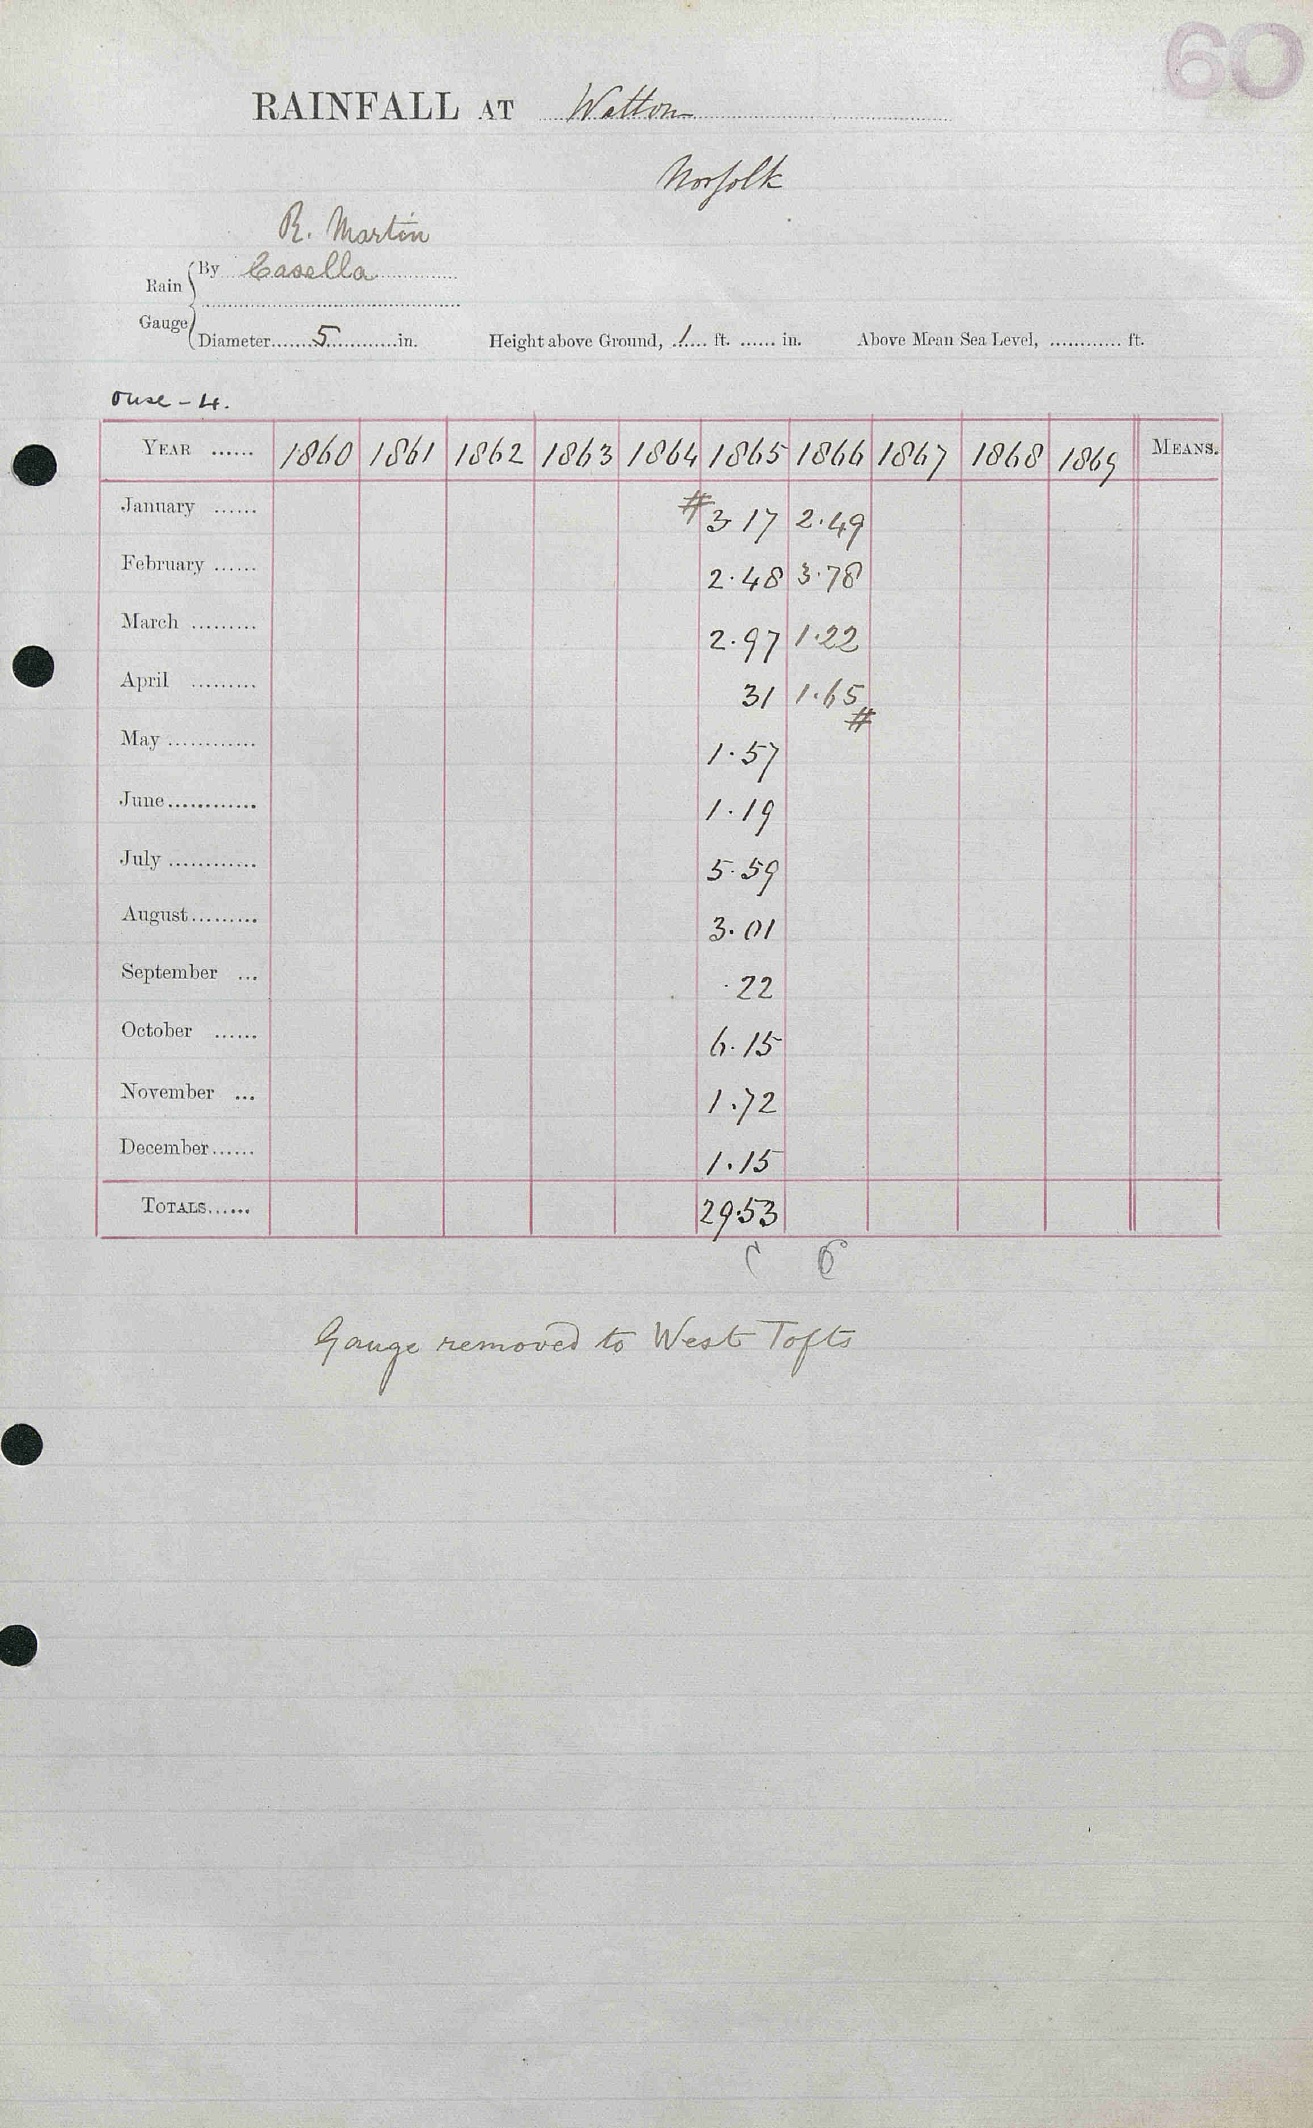 60
RAINFALL AT Watton
Norfolk
R. Martin
Rain Gauge By Casella
Diameter 5 in. Height above Ground, 1 ft. ...... in. Above Mean Sea Level, ............ ft.
Ouse - 4.
YEAR ...... 1860 1861 1862 1863 1864 1865 1866 1867 1868 1869 MEANS.
January ...... # 3 17 2.49
February ...... 2.48 3.78
March ......... 2.97 1.22
April ......... 31 1.65 #
May ............ 1.57
June............ 1.19
July ............ 5.59
August......... 3.01
September ... .22
October ...... 6.15
November ... 1.72
December...... 1.15
TOTALS...... 29.53
Gauge removed to West Tofts